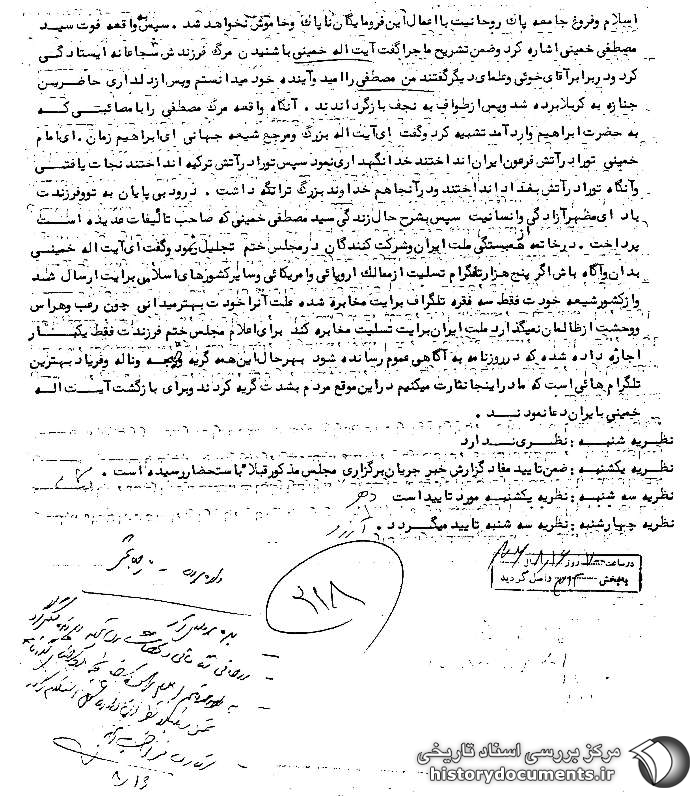 اسلام وفروغ جامعه پاك روحانیت با اعمال این فرومایگان ناپاك وخاموش نخواهد شد . سپس واقعه فوت سید
مصطفی خمینی اشاره كرد وضمن تشریح ماجرا گفت آیت اله خمینی با شنیدن مرگ فرزندش شجاعانه ایستادگی
كرد ودر برابر آقای خوئی وعلمای دیگر گفتند من مصطفی را امید وآینده خود میدانستم وپس از دلداری حاضرین
جنازه به كربلا برده شد وپس از طواف به نجف بازگرداندند . آنگاه واقعه مرگ مصطفی را با مصائبتی كه
به حضرت ابراهیم وارد آمد تشبیه كرد وگفت ای آیت اله بزرگ ومرجع شیعه جهانی ای ابراهیم زمان . ای امام
خمینی تورا در آتش فرعون ایران انداختند خدا نگهداری نمود سپس تورا در آتش تركیه انداختند نجات یافتی
وآنگاه تورا در آتش بغداد انداختند ودر آنجا هم خداوند بزرگ ترا نگه داشت . درود بی پایان به تووفرزندت
باد ای مظهر آزادگی وانسانیت سپس بشرح حال زندگی سید مصطفی خمینی كه صاحب تالیفات عدیده است
پرداخت . درخاتمه از همبستگی ملت ایران وشركت كنندگان در مجلس ختم تجلیل نمود وگفت ای آیت اله خمینی
بدان وآگاه باش اگر پنج هزار تلگرام تسلیت از ممالك اروپائی وامریكائی وسایر كشورهای اسلامی برایت ارسال شد
واز كشور شیعه خودت فقط سه فقره تلگراف برایت مخابره شده علت آنرا خودت بهتر میدانی چون رعب وهراس
ووحشت از ظالمان نمیگذارد ملت ایران برایت تسلیت مخابره كند برای اعلام مجلس ختم فرزندت فقط یكبار
اجازه داده شده كه در روزنامه به آگاهی عموم رسانده شود بهرحال این همه گریه وضجه وناله وفریاد بهترین
تلگرام هائی است كه ما در اینجا نظارت میكنیم در این موقع مردم بشدت گریه كردند وبرای بازگشت آیت اله
خمینی با ایران دعا نمودند .
نظریه شنبه : نظری ندارد
نظریه یكشنبه : ضمن تایید مفاد گزارش خبر جریان برگزاری مجلس مذكور قبلا" باستحضار رسیده است .
نظریه سه شنبه : نظریه یكشنبه مورد تایید است
نظریه چهارشنبه : نظریه سه شنبه تایید میگردد .
در ساعت روز
به بخش واصل گردید
۳۱۸
۸/۱۶
مرکز بررسی اسناد تاریخی
historydocuments.ir